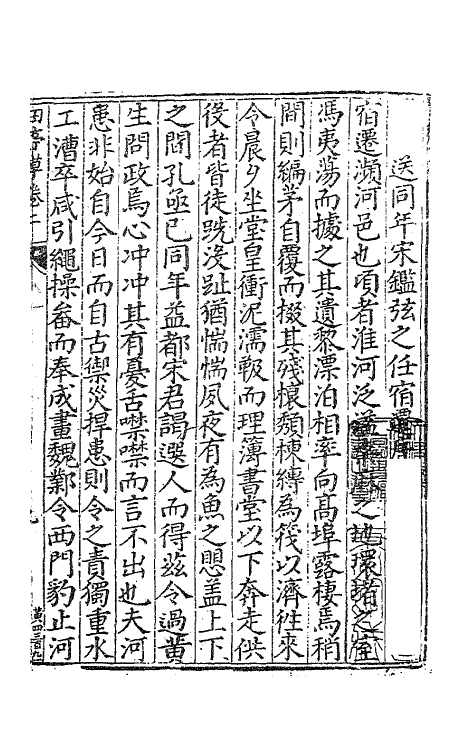 送同年宋鑑弦之任宿遷序
宿遷瀕河邑也頃者淮河泛溢之地環堵之室
馮夷蕩而據之其遺黎漂泊相率向高埠露棲焉稍
間則編茅自覆而掇其殘榱頹棟縛為筏以濟徃來
令晨夕坐堂皇衝泥濡㪅而理簿書堂以下奔走供
後者皆徒跣沒趾猶惴惴夙夜有為魚之愳盖上下
之間孔亟已同年益都宋君謁選人而得兹令過黃
生問政焉心冲冲其有憂舌噤噤而言不出也夫河
患非始自今日而自古禦災捍患則令之責獨重水
工漕卒咸引繩操畚而奉成畫魏鄴令西門豹止河
卷二